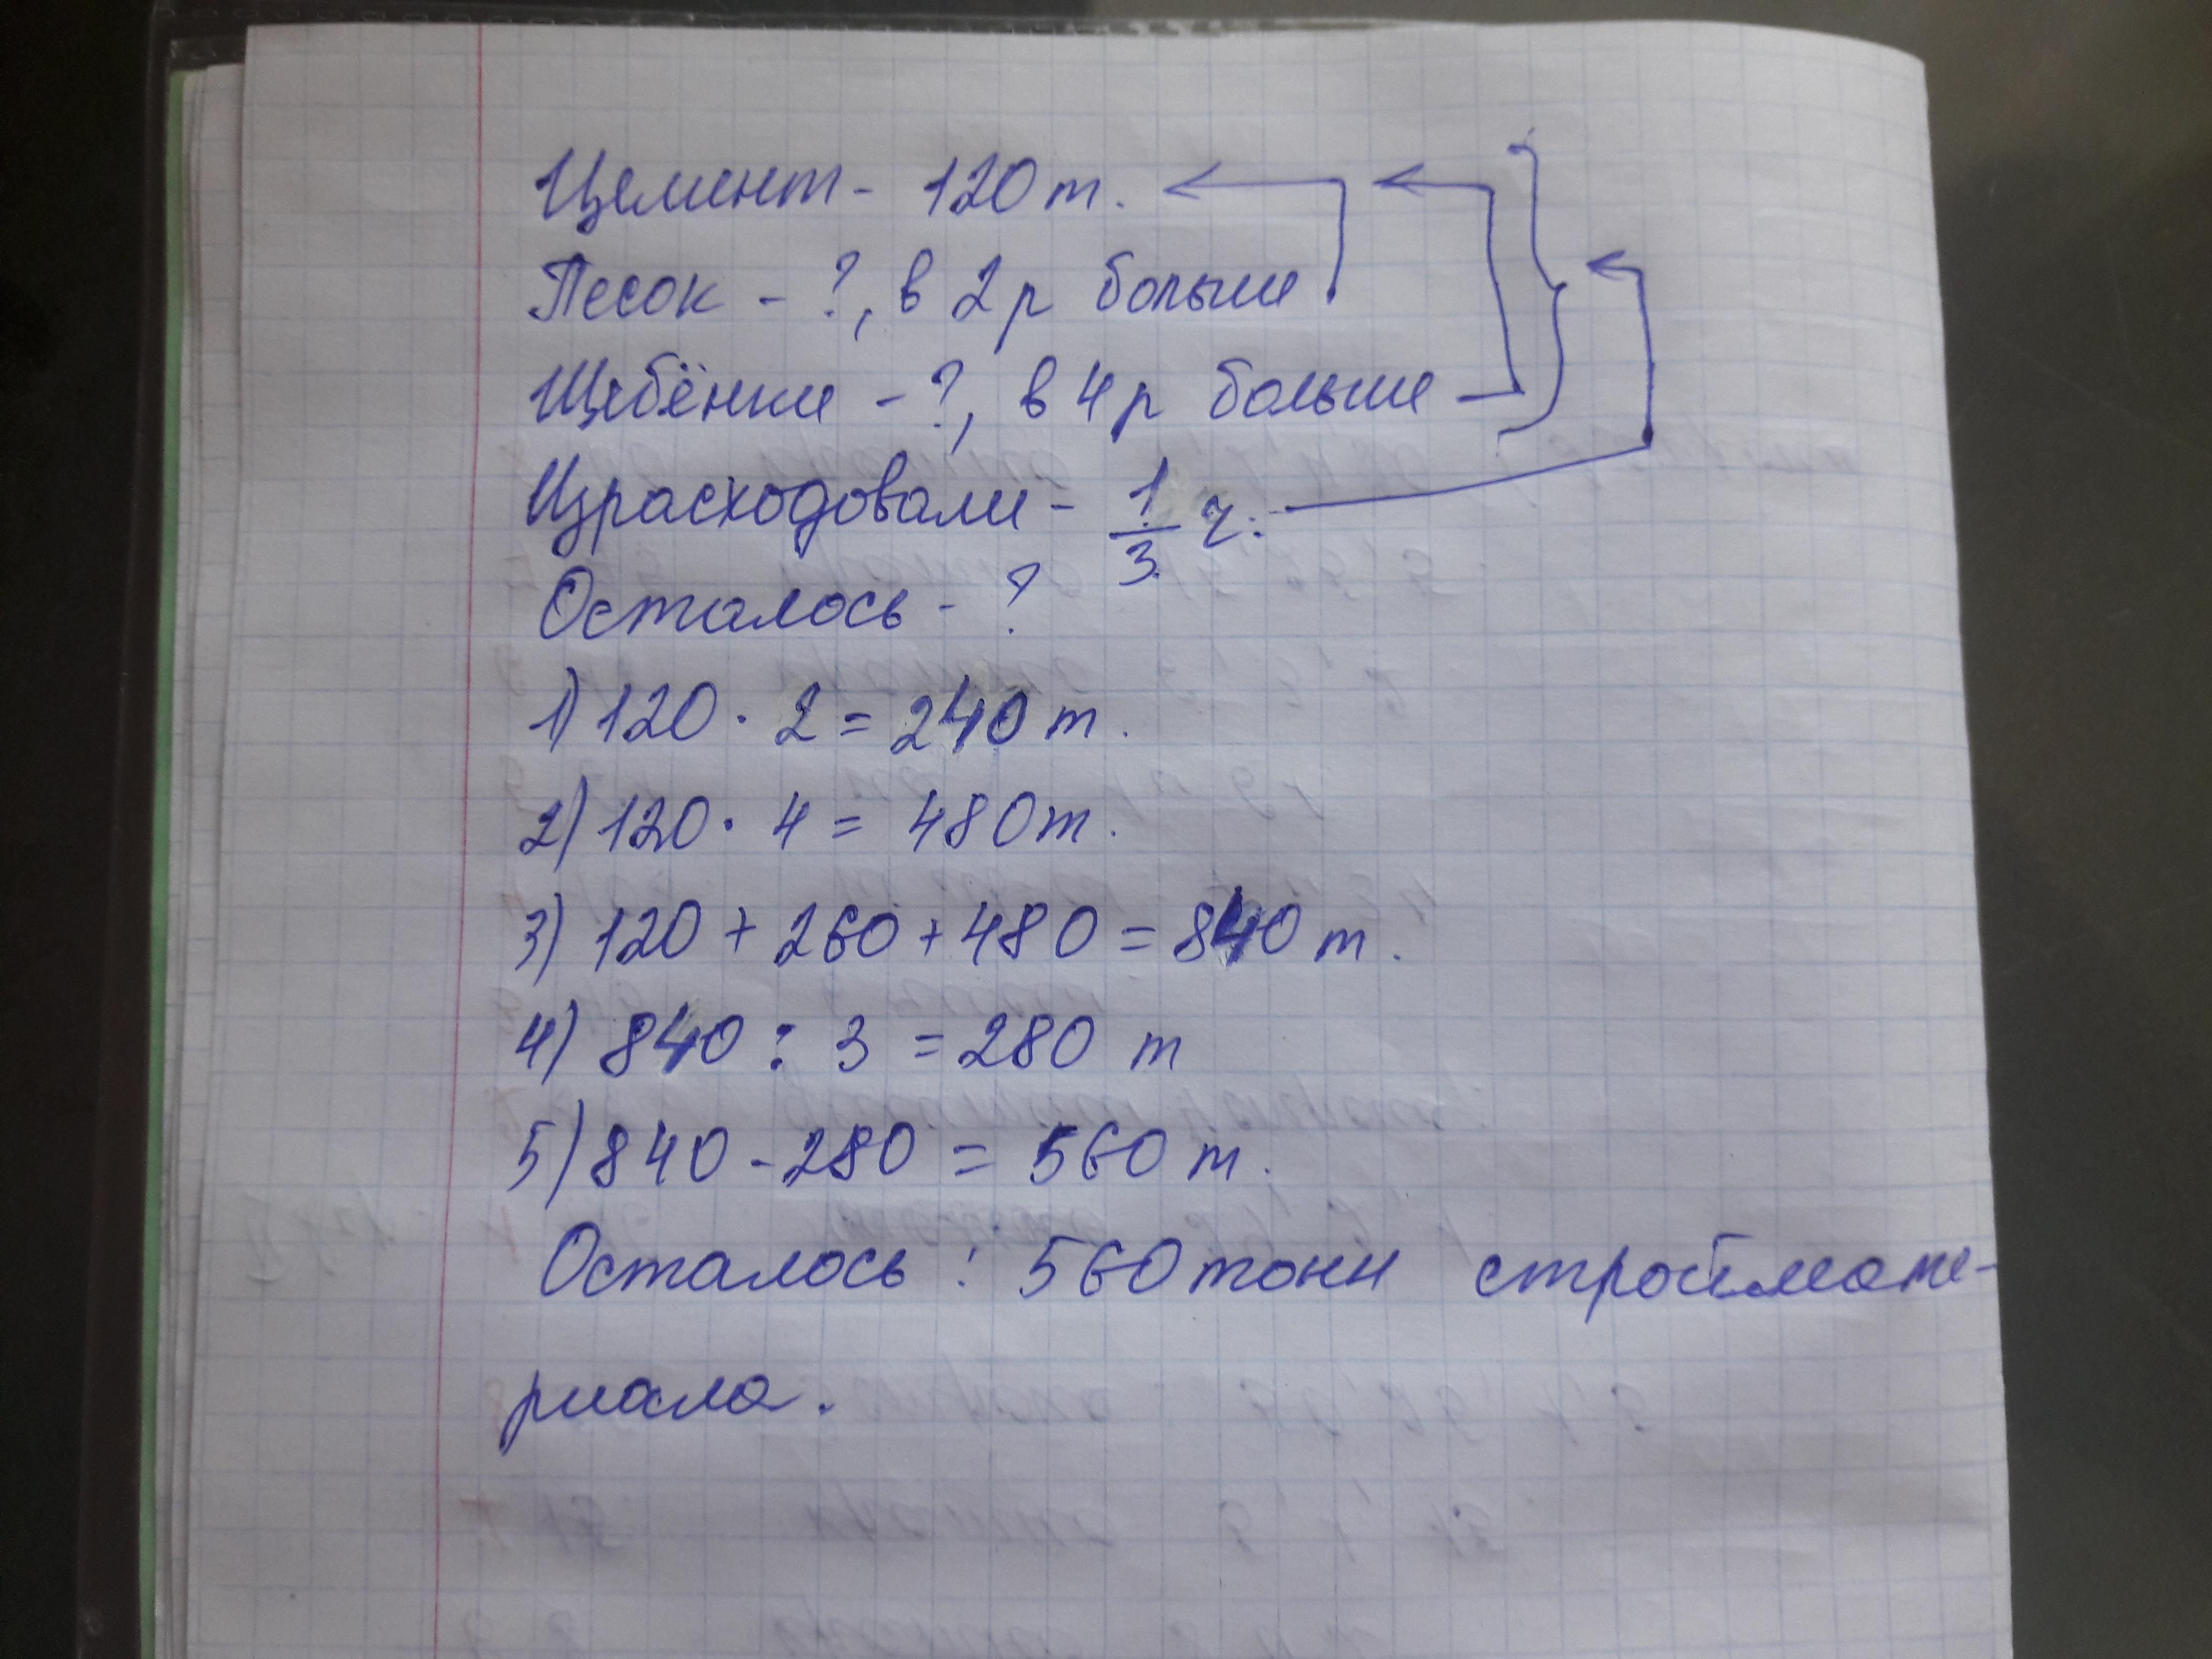 Цемент - 120 т.
Песок - ?, в 2 р больше
Щебёнки - ?, в 4 р больше
Израсходовали - 1/3 ч.
Осталось - ?
1) 120 · 2 = 240 т.
2) 120 · 4 = 480 т.
3) 120 + 260 + 480 = 840 т.
4) 840 : 3 = 280 т
5) 840 - 280 = 560 т.
Осталось : 560 тонн строймате-
риала.